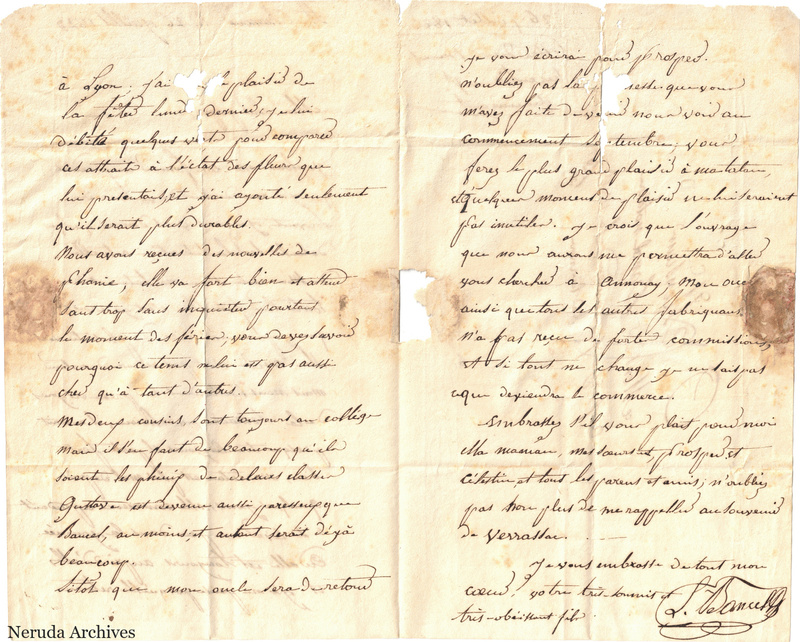 à Lyon; j'ai le plaisir de
la fête lundi dernier, je lui
débité quelques vers pour comparer
ces attraits à l'état des fleurs que
lui presentais, et j'ai ajouté seulement
qu'il serait plus durables.
Nous avons reçues des nouvelles de
elle va fort bien et attend
sans trop s'inquieter pourtant
le moment des féries; vous devez savoir
pourquoi ce tems ne lui est pas aussi
cher qu'à tant d'autres.
Mes deux cousins sont toujours au collège
mais il s'en faut de beaucoup qu'ils
soient les de classes
Gustave est devenu aussi paresseux que
Bancel, au moins, et autant serait déjà
beaucoup.
Sitôt que mon oncle sera de retour
je vous écrirai pour Prosper.
n'oubliez pas la esse que vous
m'avez faite de venir nous voir au
commencement Septembre; vous
ferez le plus grand plaisir à ma tatan,
et quelques momens de plaisir ne lui seraient
pas inutiles. Je crois que l'ouvrage
que nous aurons me permettra d'aller
vous chercher à Annonay; Mon oncle
ainsi que tous les autres fabriquans
n'a pas reçu de forte commissions,
et si tout ne change je ne sais pas
que deviendra le commerce.
Embrassez s'il vous plait pour moi
Ma maman, mes sœurs et Prosper, et
Célestin, et tout les parens et amis; n'oubliez
pas non plus de me rappeller au souvenir
de Verrassac.
Je vous embrasse de tout mon
cœur! votre très-soumis et
très-obéissant fils
L. Bancel
Neruda Archives